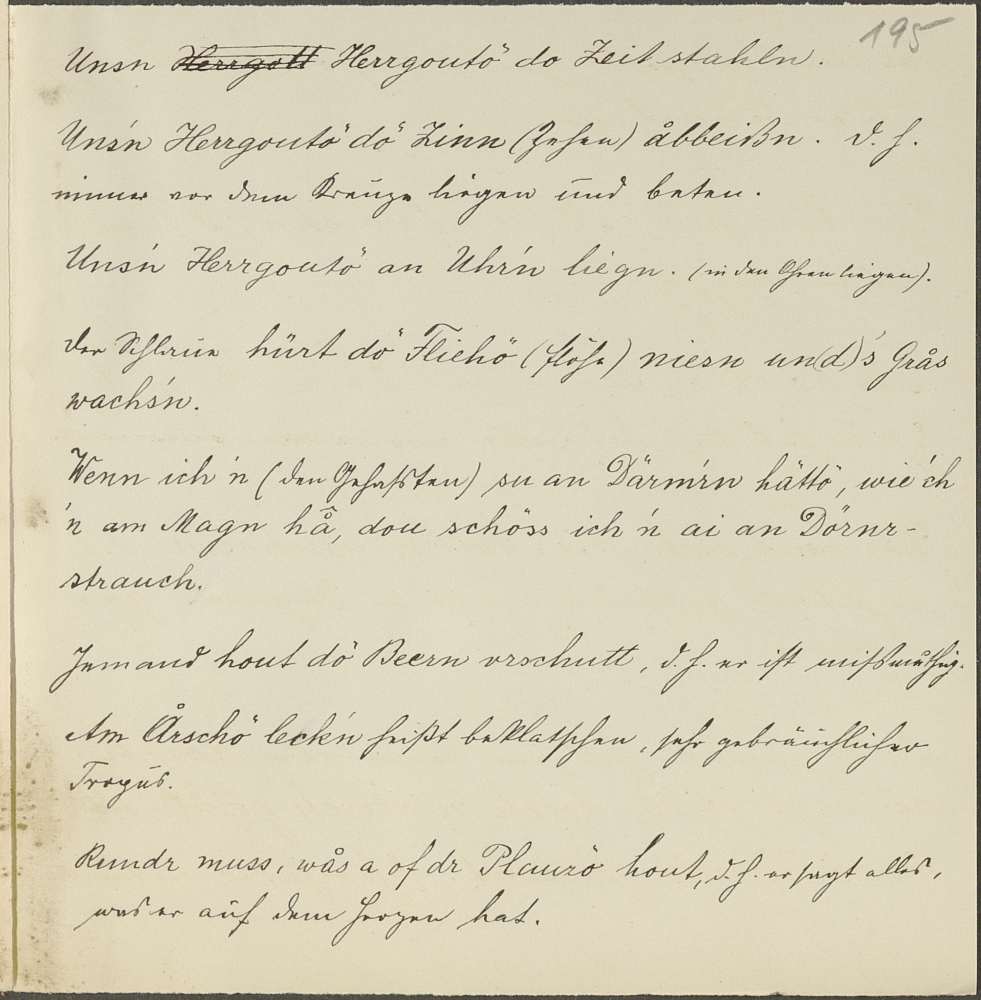 195
Unsn ~~Herrgott~~ Herrgoutö do Zeit stahln.
Uns'n Herrgoutö dö Zinn (Zehen) åbbeißn. d. h.
immer vor dem Kreuze liegen und beten.
Uns'n Herrgoutö an Uhr'n liegn. (in den Ohren liegen).
Der Schlaue hürt dö Fliehö (Flöhe) niesn un(d)'s Grås
wachs'n.
Wenn ich 'n (den Gehaßten) su an Därm'rn hättö, wie'ch
'n am Magn hå, dou schöss ich 'n ai an Dörnr-
strauch.
Jemand hout dö Beern vrschutt, d. h. er ist mißmuthig.
Am Årschö leck'n heißt beklatschen, sehr gebräuchlicher
Tropus.
Rundr muss, wås a of dr Plauzö hout, d. h. er sagt alles,
was er auf dem Herzen hat.